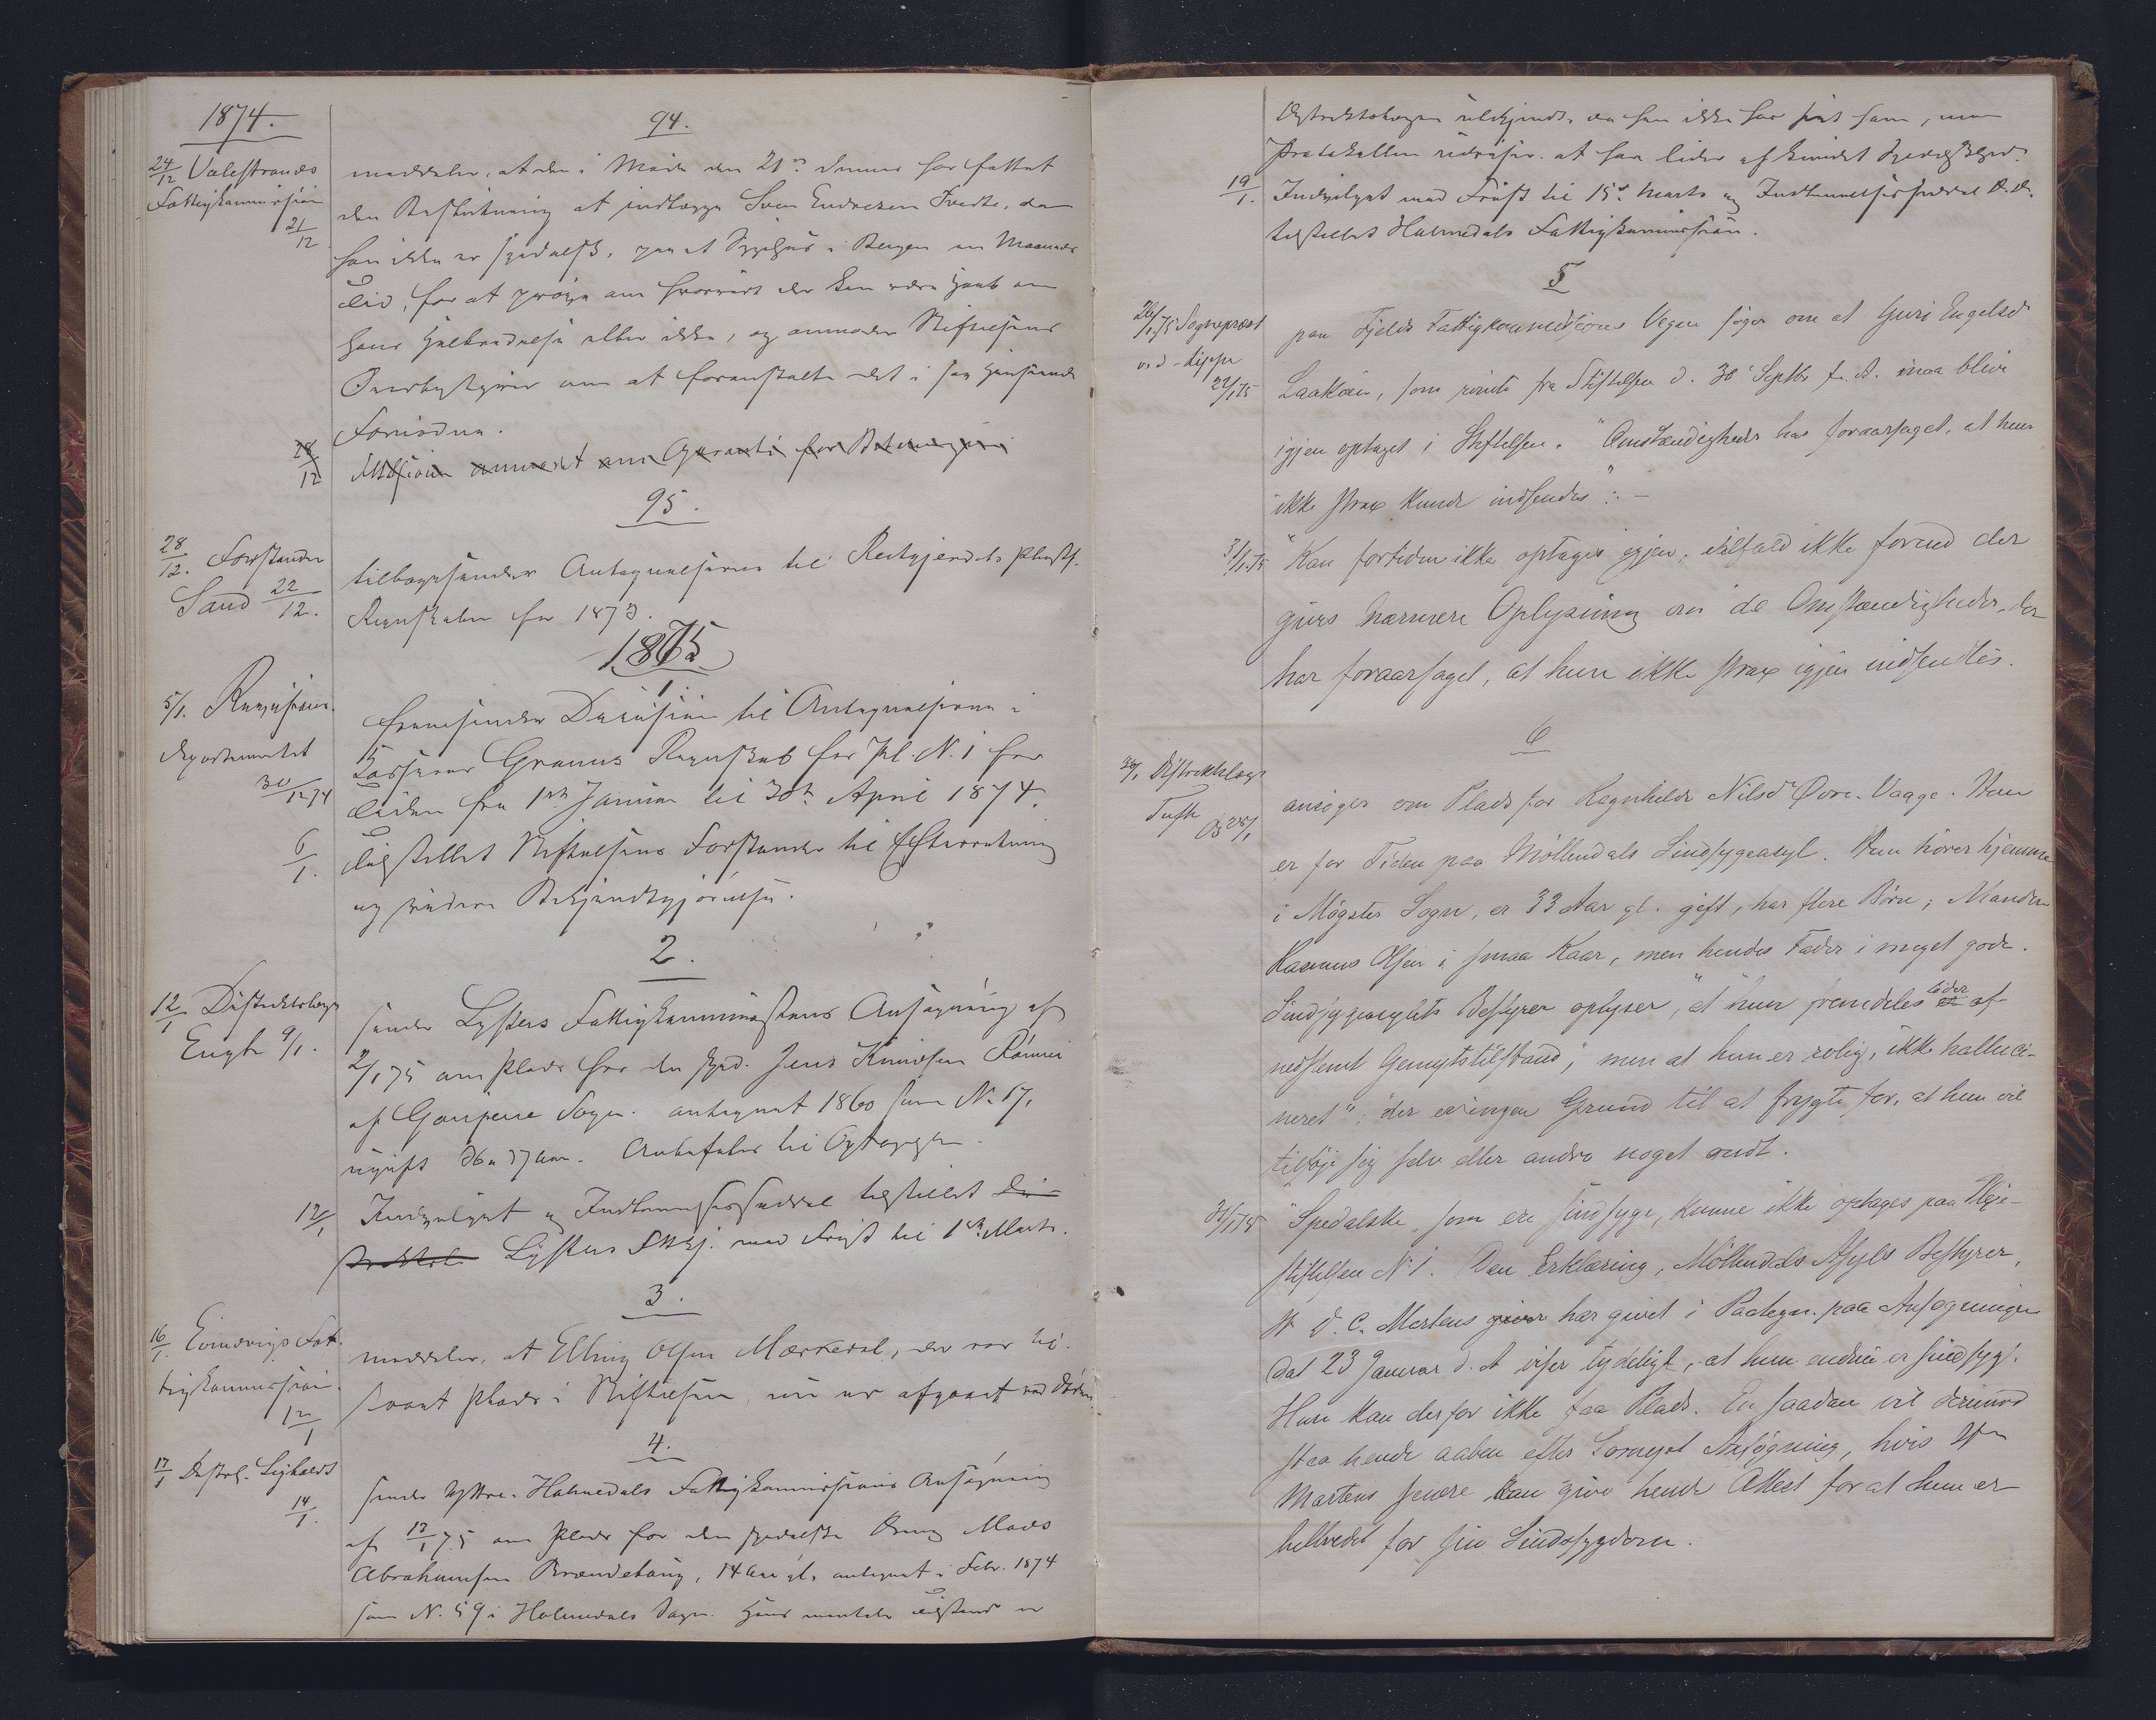 1874.
94.
24/12 Valestrands
Fattigkommission
21/12
meddeler, at den i Møde den 21de dennes har fattet
den Beslutning at indlægge Sven Endresen Tvedte, da
han ikke er spedalsk, paa et Sygehus i Bergen en Maaneds
Tid, for at prøve om hvorvidt der kan være Haab om
hans Helbredelse eller ikke, og anmoder Stiftelsens
Overbestyrer om at foranstalte det i saa Henseende
Fornødne.
28/12
anmodet om Garanti for Betalingen
95.
28/12. Forstander
Sand 22/12.
tilbagesender Antegnelserne til Reitgjerdets Pleiest.
Regnskaber for 1873.
1875
1.
5/1. Revisions-
departementet
30/12 74
fremsender Decision til Antegnelserne i
Kasserer Grans Regnskab for Pl. N. 1 for
Tiden fra 1ste Januar til 30te April 1874.
6/1.
Tilstillet Stiftelsens Forstander til Efterretning
og videre Bekjendtgjørelse.
2.
12/1 Distriktslæge
Engh 9/1.
sender Lysters Fattigkommissions Ansøgning af
2/1 75 om Plads for den spd. Jens Knudsen Rønnei
af Gaupne Sogn. antegnet 1860 som N. 17,
ugift 36 a 37 Aar. Anbefales til Optagelse.
12/1
Indvilget og Indlemmelsesseddel tilstillet Di-
Lysters Fttgk. med Frist til 1ste Marts.
3.
16/1. Evindvigs Fat-
tigkommission.
12/1
meddeler, at Elling Olsen Mærkesol, der var til-
staaet Plads i Stiftelsen, nu er afgaaet ved Døden
4.
17/1 Distrl. Lighaldt
14/1.
sender Yttre-Holmedals Fattigkommissions Ansøgning
af 13/1 75 om Plads for den spedalske Dreng Mads
Abrahamsen Brændehaug, 14 Aar gl. antegnet i Febr. 1874
som N. 59 i Holmedals Sogn. Hans mentale Tilstand er
Distriktslægen ubekjendt, da han ikke har seet ham, men
Protokollen udviser, at han lider af knudet Spedalskhed.
19/1.
Indvilget med Frist til 15de Marts og Indlemmelsesseddel D. D.
tilstillet Holmedals Fattigkommission.
5
26/1 75 Sognepræst
v. d. Lippe
22/1 75
paa Fjelds Fattigkommissions Vegne søger om at Guri Engelsd.
Laakøen, som rømte fra Stiftelsen d. 30' Septbr f. A. maa blive
igjen optaget i Stiftelsen. "Omstændigheder har foraarsaget, at hun
ikke strax kunde indsendes": —
31/1.75
"Kan fortiden ikke optages igjen, ialfald ikke forend der
gives nærmere Oplysning om de Omstændigheder, der
har foraarsaget, at hun ikke strax igjen indsendtes.
6
30/1 Distriktslæge
Tuft
28/1
ansøger om Plads for Ragnhilde Nilsdr Øvre-Vaage. Hun
er for Tiden paa Møllendals Sindsygeasyl. Hun hører hjemme
i Møgster Sogn, er 33 Aar gl. gift, har flere Børn; Manden
Rasmus Olsen i smaa Kaar, men hendes Fader i meget gode.
Sindsygeasylets Bestyrer oplyser, "at hun fremdeles lider af
nedstemt Gemytstilstand", men at hun er rolig, ikke halluci-
neret"; der er ingen Grund til at frygte for, at hun vil
tilføje sig selv eller andre noget ondt.
31/1 75
"Spedalske, som ere sindsyge, kunne ikke optages paa Pleje-
stiftelsen N. 1. Den Erklæring, Møllendals Asyls Bestyrer,
Hr D. C. Martens giver har givet i Paategn. paa Ansøgningen
dat 23 Januar d. A. viser tydeligt, at hun endnu er sindsyg.
Hun kan derfor ikke faa Plads. En saadan vil derimod
staa hende aaben efter fornyet Ansøgning, hvis Hr
Martens senere kan give hende Attest for at hun er
helbredet for sin Sindssygdom.